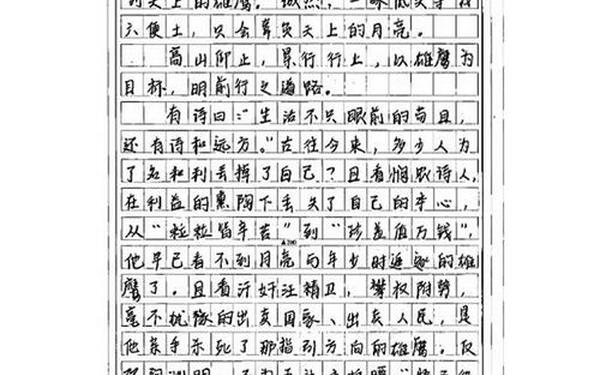 的天上的雄鹰。诚然,一味低头寻找
六便士,只会辜负天上的月亮。
高山仰止,景行行止,以雄鹰为
目标,明前行之道路。
有诗曰:"生活不只眼前的苟且,
还有诗和远方。"古往今来,多少人为
了名和利丢掉了自己?且看悯农诗人,
在利益的熏陶下丢失了自己的本心,
从"粒粒皆辛苦"到"珍羞值万钱",
▲700
他早已看不到月亮而年少时追逐的雄
鹰了。且看汉奸汪精卫,攀权附势,
毫不犹豫的出卖国家、出卖人民,是
他亲手杀死了那指引方向的雄鹰。反